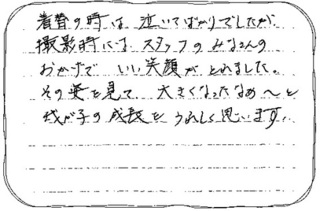 着替の時は 泣いてばかりでしたが
撮影時には スタッフのみなさんの
おかげで いい笑顔が とれました。
その姿を見て 大きくなったなぁ〜と
我が子の成長を うれしく思います。